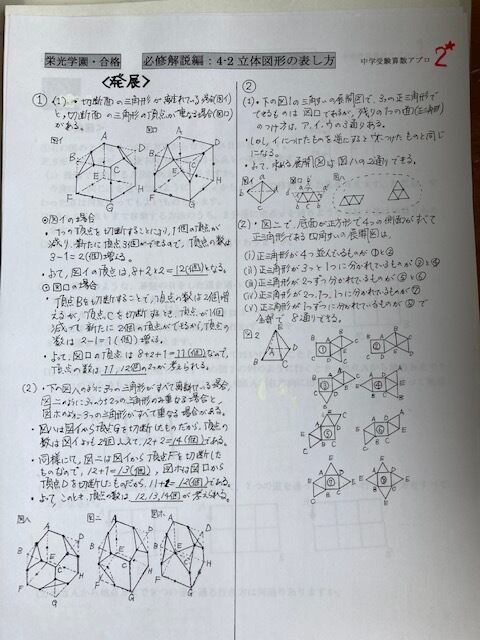 栄光学園・合格 必修解説編：4-2 立体図形の表し方 中学受験算数アプロ 2*
<発展>
① (1)・切断面の三角形が離れている場合(図イ)
と、切断面の三角形の頂点が重なる場合(図ロ)
がある。
図イ 図ロ
A B C D E F G H
A B C D E F G H
◎図イの場合
・1つの頂点を切断することにより、1個の頂点が
減り、新たに頂点3個ができるので、頂点の数は
3-1=2(個)増える。
・よって、図イの頂点は、8+2×2=12(個)となる。
◎図ロの場合
・頂点Bを切断することで、頂点の数は2個増
えるが、頂点Cを切断するとき、頂点が1個
減って、新たに2個の頂点ができるから、頂点
の数は2-1=1(個)増える。
・よって、図ロの頂点は8+2+1=11(個)なので、
頂点の数は、11,12個の2つが考えられる。
(2)・下の図ハのように3つの三角形がすべて離れている場合、
図ニのように3つのうち2つの三角形のみ重なる場合と
図ホのように3つの三角形がすべて重なる場合がある。
・図ハは図イから頂点Gを切断したものだから、頂点の
数は図イよりも2個ふえて、12+2=14(個)である。
・同様にして、図ニは図イから頂点Fを切断した
ものなので、12+1=13(個)、図ホは図ロから
頂点Dを切断したものだから、11+1=12(個)である。
・よって、このとき、頂点の数は、12,13,14個が考えられる。
図ハ 図ニ 図ホ
A B C D E F G H
A B C D E F G H
A B C D E F G H
②
(1)・下の図1の三角すいの展開図で、3つの正三角形で
できるものは図ロであるが、残りの1つの面(正三角形)
のつけ方は、ア、イ、ウの3通りある。
・しかし、イにつけたものを逆にするとウにつけたものと同じ
になる。
・よって、求める展開図は図ハの2通りできる。
図イ 図ロ 図ハ
(2)・図ニで、底面が正方形で4つの側面がすべて
正三角形である四角すいの展開図は、
(i)正三角形が4つ並んでいるものが①と②
(ii)正三角形が3つと1つに分かれているものが③と④
(iii)正三角形が2つずつ分かれているものが⑤と⑥
(iv)正三角形が2つ,1つ,1つに分かれているものが⑦
(v)正三角形が1つずつに分かれているものが⑧で
全部で8通りできる。
図2
A B C D E
① ②
③ ④
⑤ ⑥
⑦ ⑧